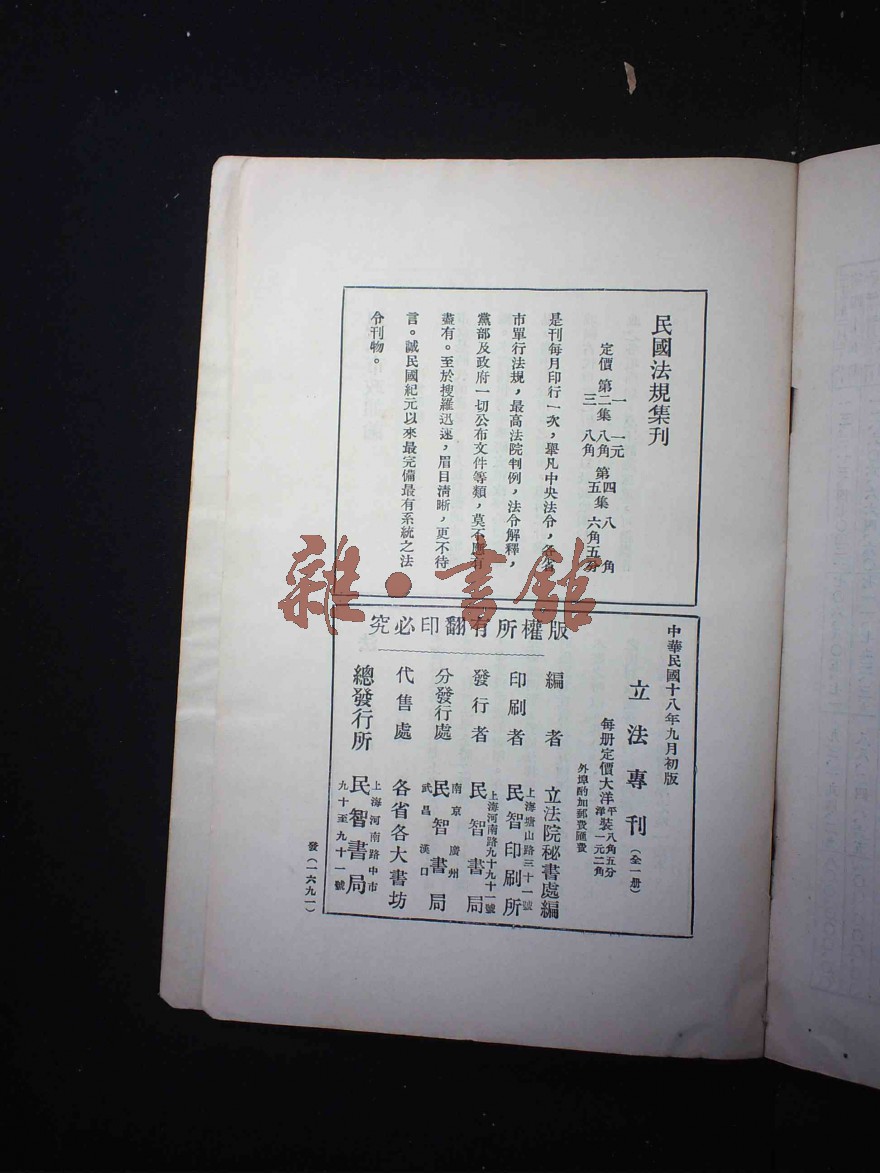 民國法規集刊
定價 第一集 一元 第二集 八角 第三集 八角 第四集 八角 第五集 六角五分
是刊每月印行一次，舉凡中央法令，各省
市單行法規，最高法院判例，法令解釋，
黨部及政府一切公布文件等類，莫不應有
盡有。至於搜羅迅速，眉目清晰，更不待
言。誠民國紀元以來最完備最有系統之法
令刊物。
中華民國十八年九月初版
立法專刊（全一册）
每册定價大洋 平裝八角五分 洋裝一元二角
外埠酌加郵費匯費
版權所有翻印必究
編者 立法院秘書處編
印刷者 上海塘山路三十一號 民智印刷所
發行者 上海河南路九十九十一號 民智書局
分發行處 南京 廣州 武昌 漢口 民智書局
代售處 各省各大書坊
總發行所 上海河南路中市九十至九十一號 民智書局
發（一六九一）
雜·書館